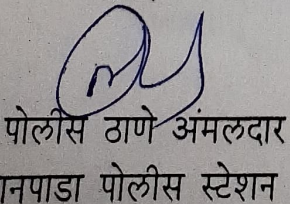 पोलीस ठाणे अंमलदार
नपाडा पोलीस स्टेशन